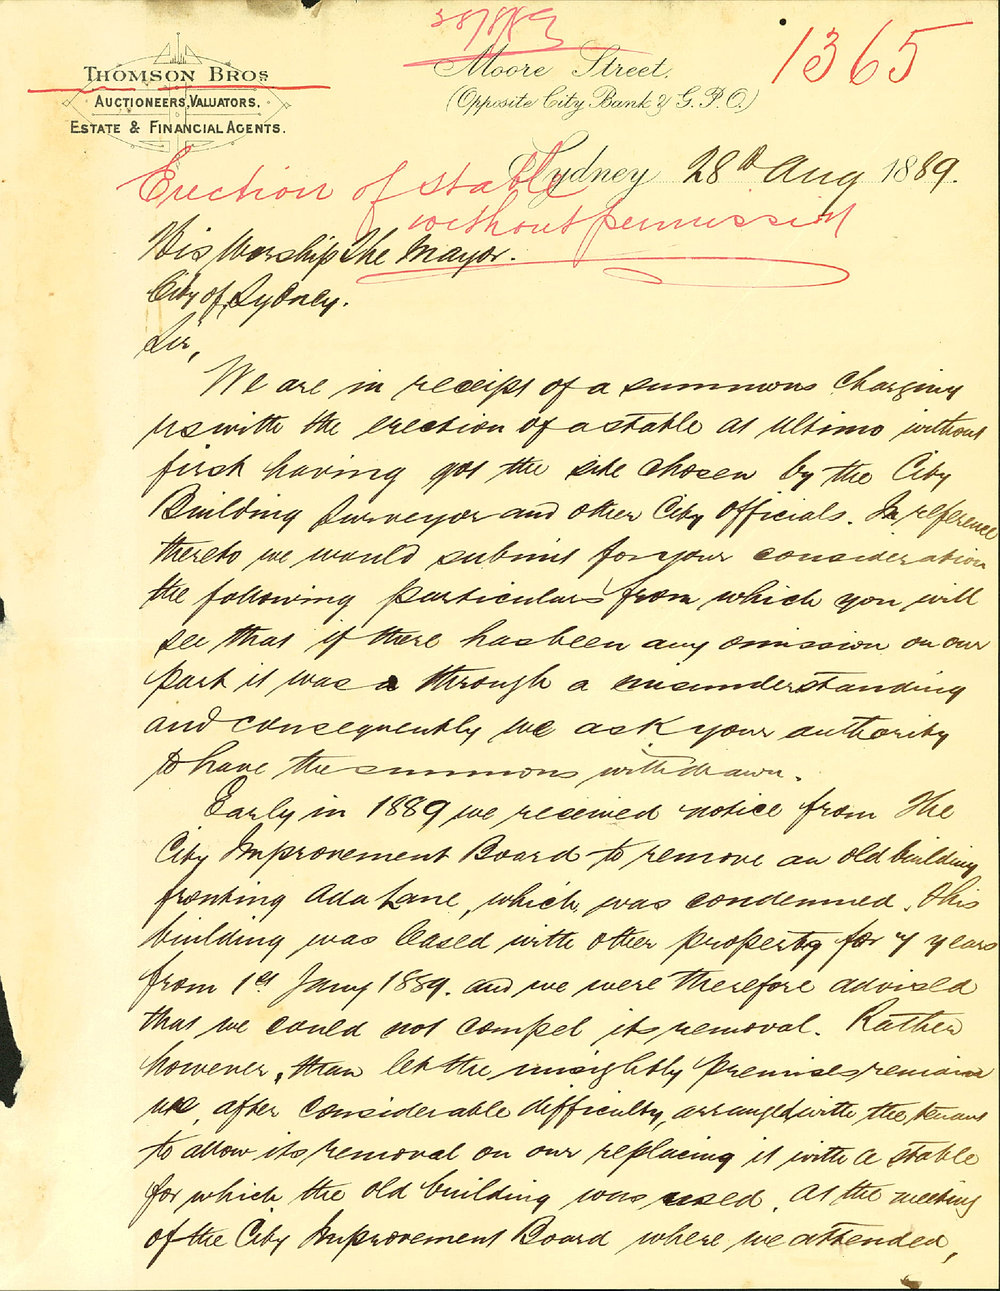 28/8/89
1365
THOMSON BROS
AUCTIONEERS, VALUATORS,
ESTATE & FINANCIAL AGENTS.
Moore Street,
(Opposite City Bank & G.P.O.)
Sydney 28th Aug 1889.
Erection of stable
without permission
His Worship The Mayor.
City of Sydney.
Sir,
We are in receipt of a summons charging
us with the erection of a stable at Ultimo without
first having got the site chosen by the City
Building Surveyor and other City Officials. In reference
thereto we would submit for your consideration
the following particulars from which you will
see that if there has been any omission on our
part it was through a misunderstanding
and consequently we ask your authority
to have the summons withdrawn.
Early in 1889 we received notice from the
City Improvement Board to remove an old building
fronting Ada Lane, which was condemned. This
building was leased with other property for 7 years
from 1st Jany 1889. and we were therefore advised
that we could not compel its removal. Rather
however, than let the unsightly premises remain
we, after considerable difficulty, arranged with the tenant
to allow its removal on our replacing it with a stable
for which the old building was used. At the meeting
of the City Improvement Board where we attended,